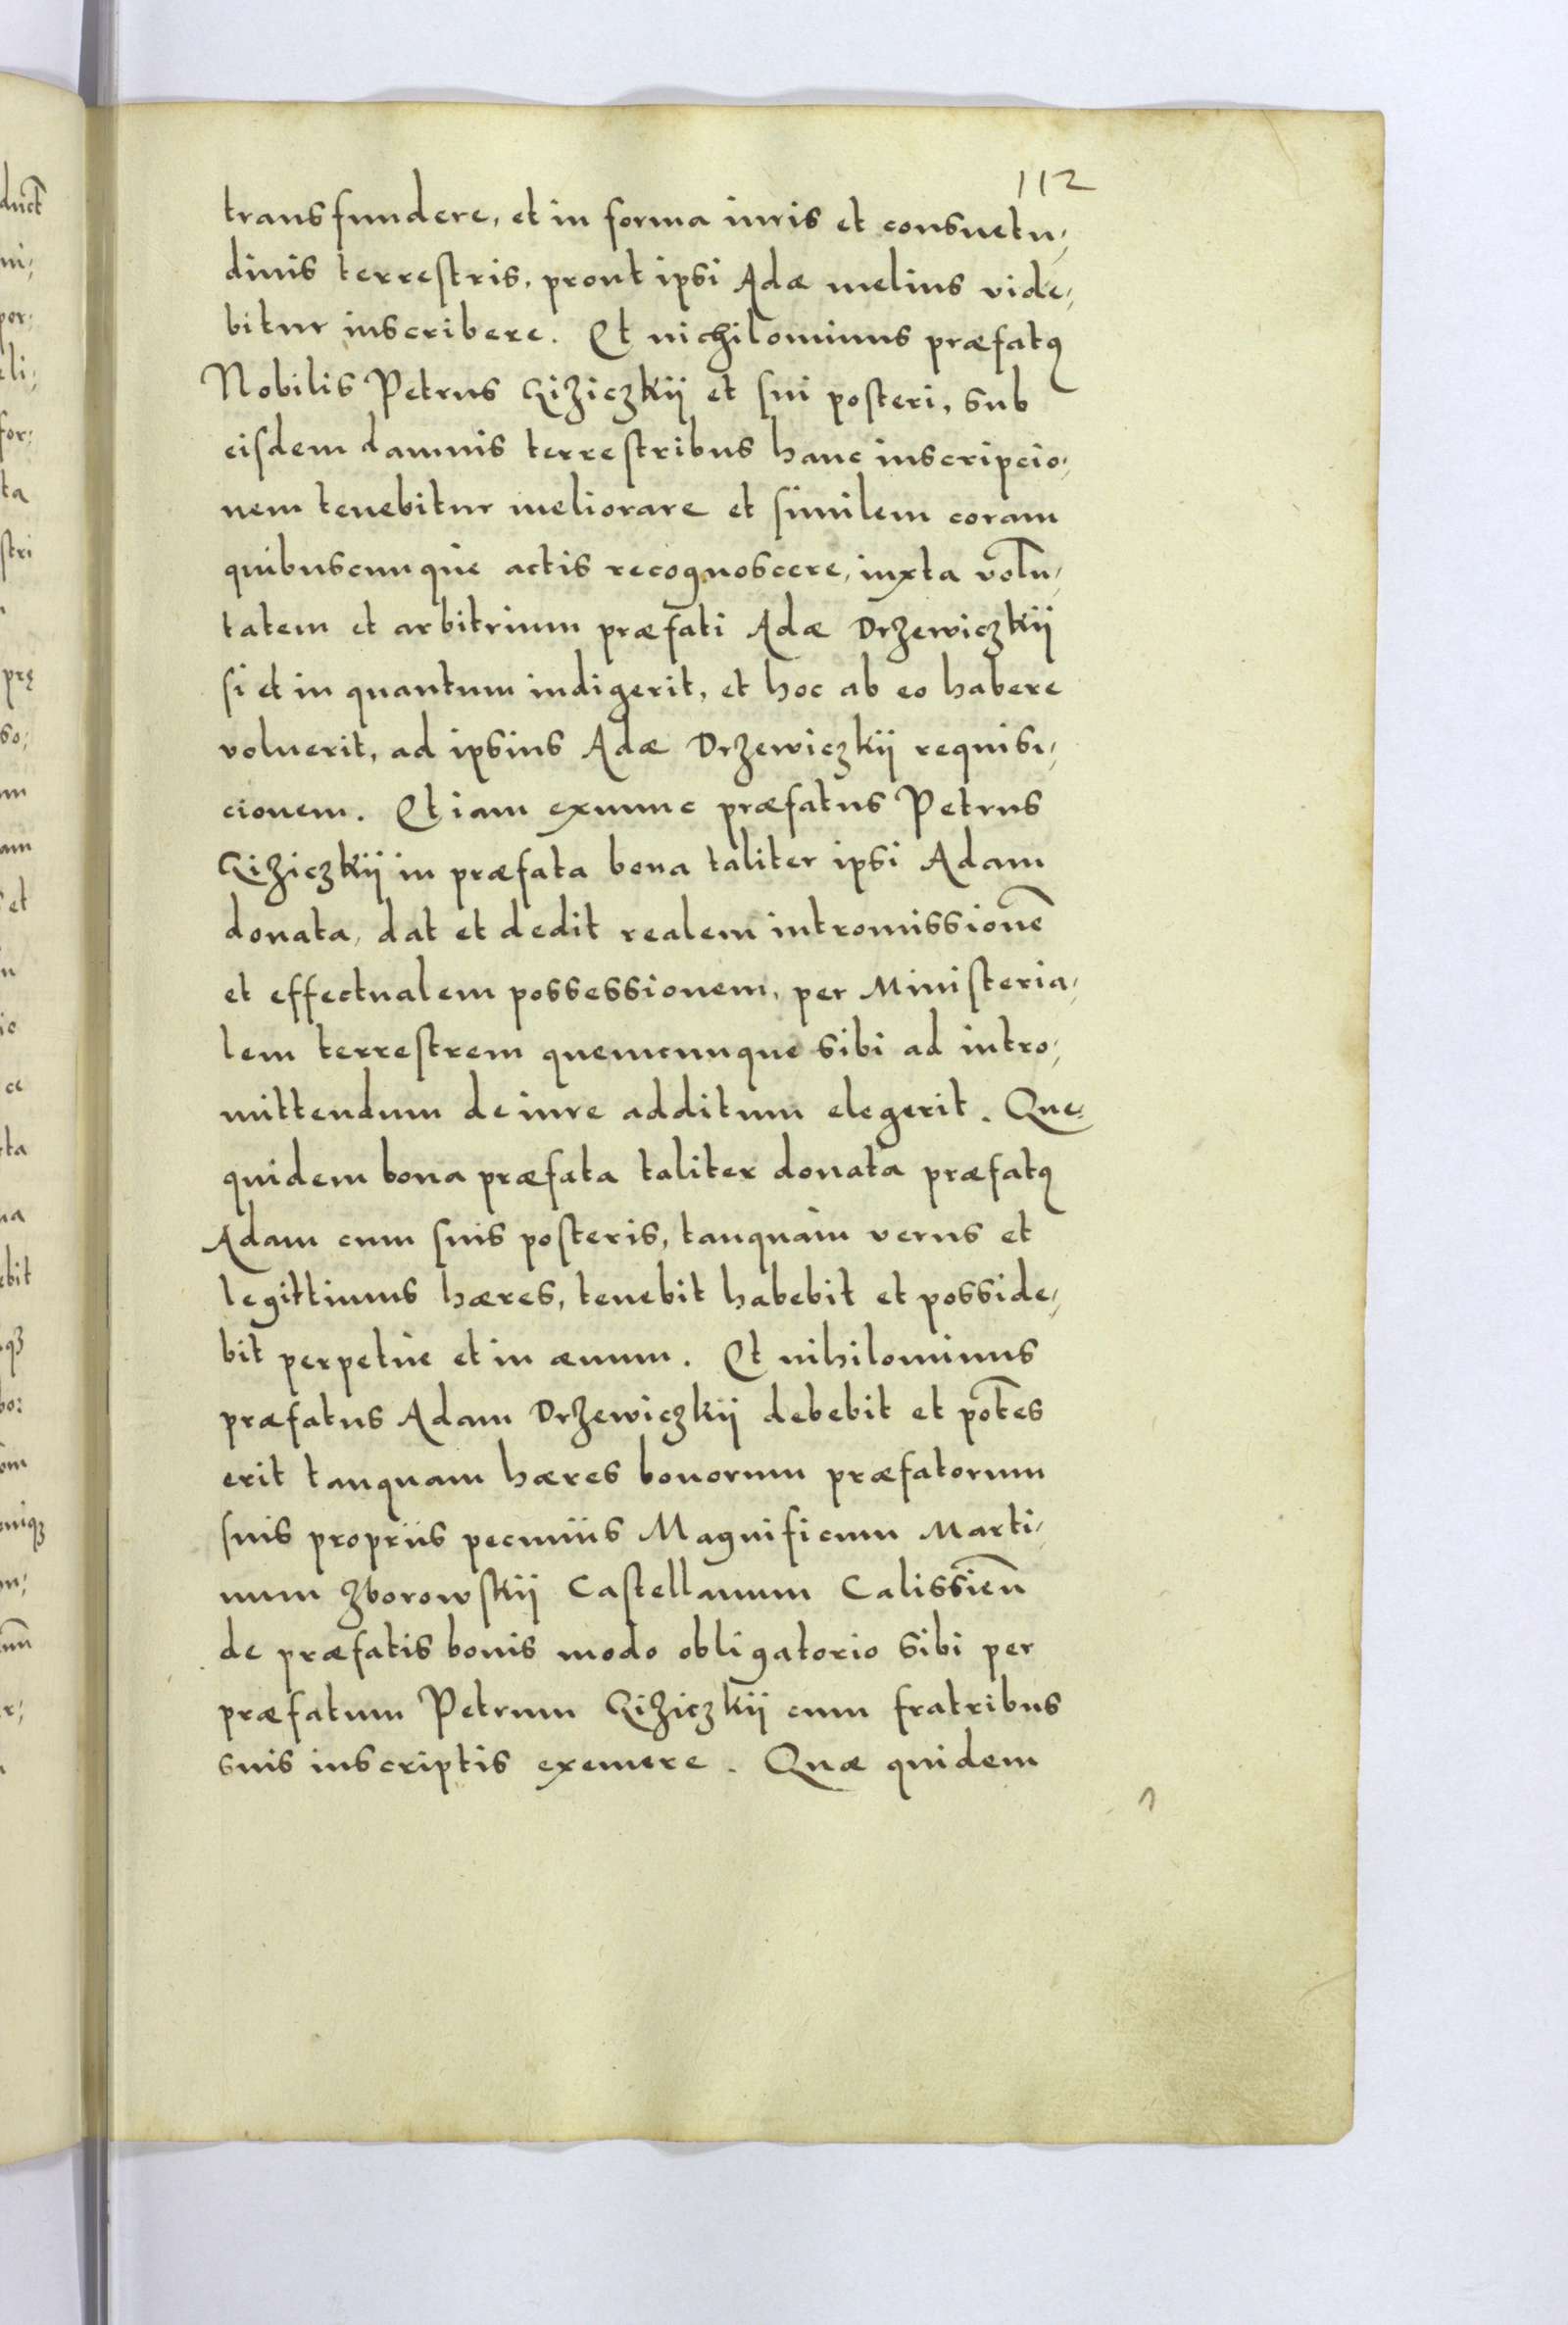 112
transfundere, et in forma iuris et consuetu,
dinis terrestris, prout ipsi Adæ melius vide,
bitur inscribere. Et nichilominus præfatꝰ
Nobilis Petrus Giziczkij et sui posteri, sub
eisdem damnis terrestribus hanc inscripcio,
nem tenebitur meliorare et similem coram
quibuscunque actis recognoscere, iuxta volū,
tatem et arbitrium præfati Adæ Drzewiczkij
si et in quantum indigerit, et hoc ab eo habere
voluerit, ad ipsius Adæ Drzewiczkij requisi,
cionem. Et iam exnunc præfatus Petrus
Giziczkij in præfata bona taliter ipsi Adam
donata, dat et dedit realem intromissionē
et effectualem possessionem, per Ministeria,
lem terrestrem quemcunque sibi ad intro,
mittendum de iure additum elegerit. Que
quidem bona præfata taliter donata præfatꝰ
Adam cum suis posteris, tanquam verus et
legittimus hæres, tenebit habebit et posside,
bit perpetue et in æuum. Et nihilominus
præfatus Adam Drzewiczkij debebit et potes
erit tanquam hæres bonorum præfatorum
suis proprijs pecunijs Magnificum Marti,
num Zborowskij Castellanum Calissień
de præfatis bonis modo obligatorio sibi per
præfatum Petrum Giziczkij cum fratribus
suis inscriptis exemere. Quæ quidem